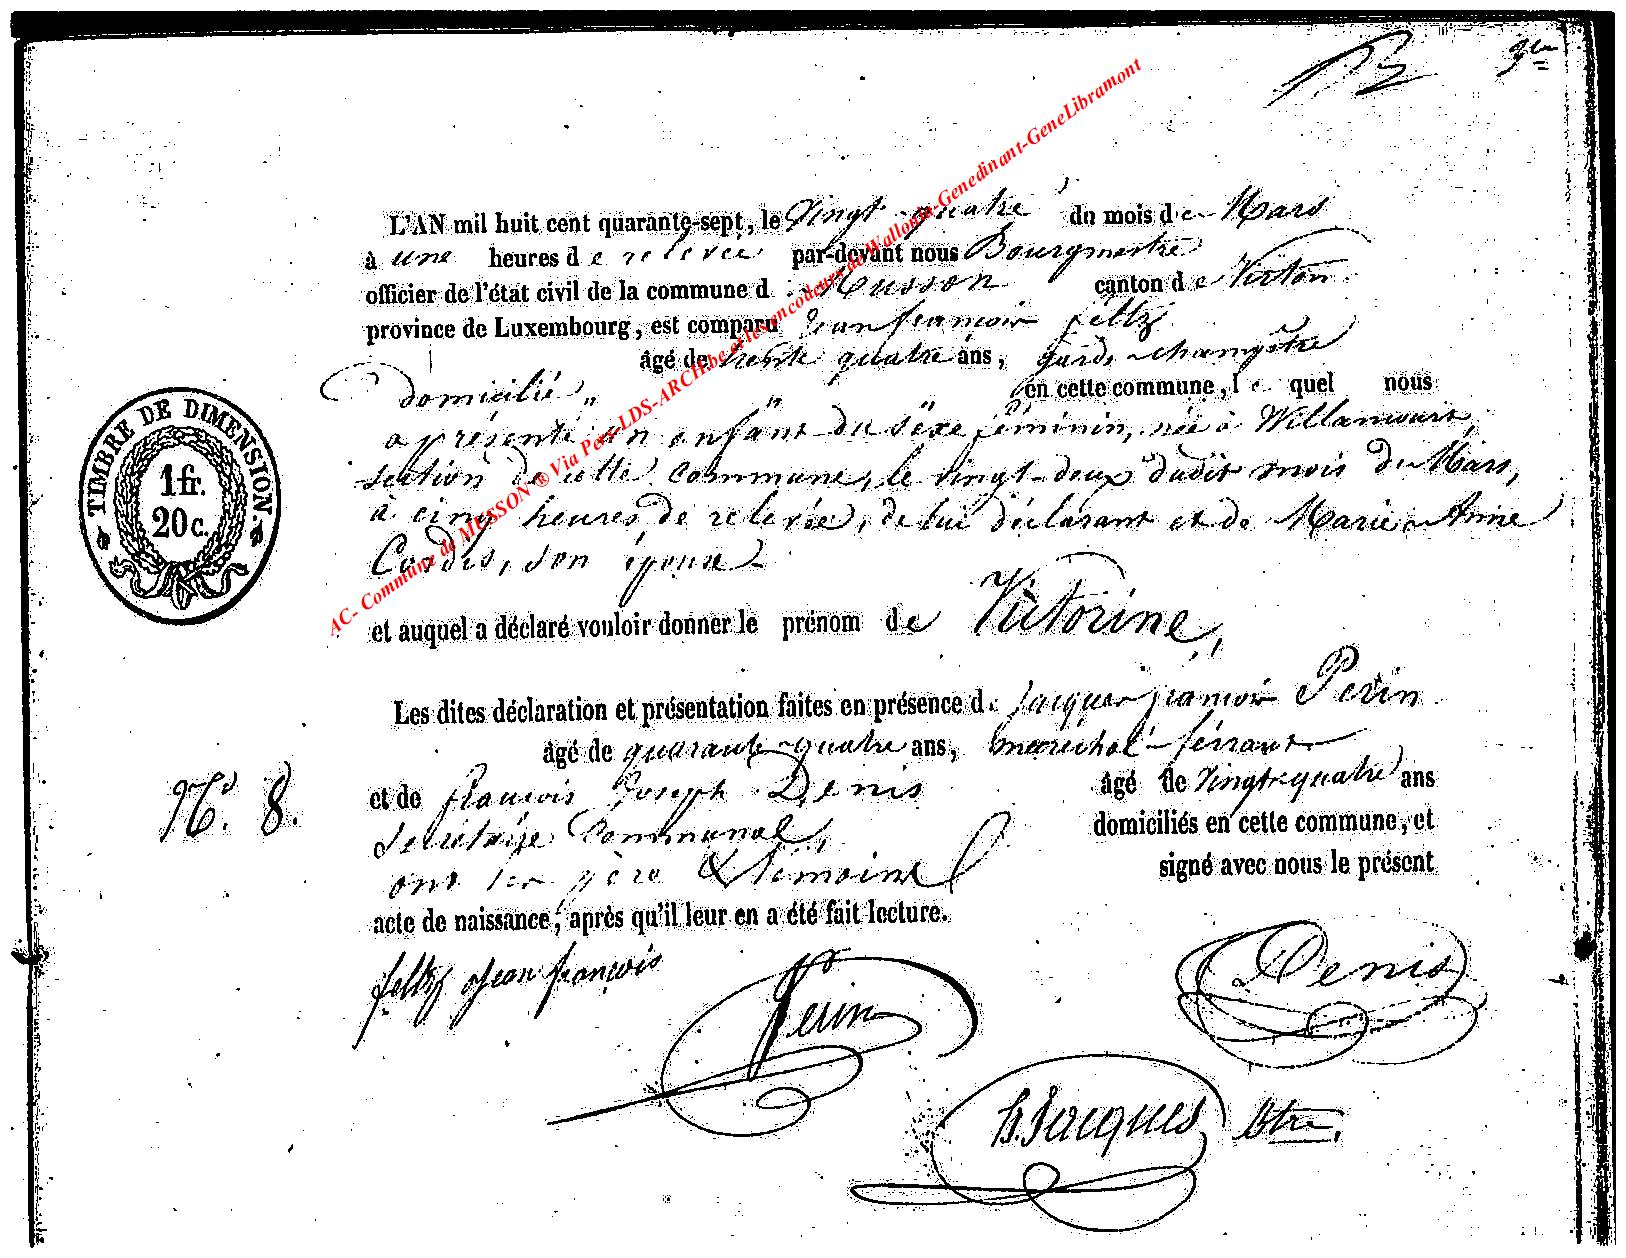 L'AN mil huit cent quarante-sept, le Vingt quatre du mois de Mars
à une heures de relevée par-devant nous Bourgmestre
officier de l'état civil de la commune d. Musson canton de Virton
province de Luxembourg, est comparu Jean françois feltz
âgé de trente quatre ans, garde-champêtre
domicilié „ „ „ en cette commune, le quel nous
a présenté un enfant du sexe féminin, née à Willancourt,
section de cette commune, le vingt-deux dudit mois de Mars,
à cinq heures de relevée, de lui déclarant et de Marie Anne
son épouse
et auquel a déclaré vouloir donner le prénom de Victorine,
Les dites déclaration et présentation faites en présence de Jacques françois Perin
âgé de quarante-quatre ans, maréchal-ferrant
et de françois Joseph Denis âgé de Vingt-quatre ans
secrétaire Communal, domiciliés en cette commune, et
ont les père & témoins signé avec nous le présent
acte de naissance, après qu'il leur en a été fait lecture.
N° 8.
TIMBRE DE DIMENSION.
1 fr.
20 c.
feltz Jean françois
Perin
Denis
H. Jacques, Btre.
AC- Commune de MUSSON ® Via Pers-LDS-ARCH.be et les encodeurs de Wallonia-Genedinant-GeneLibramont